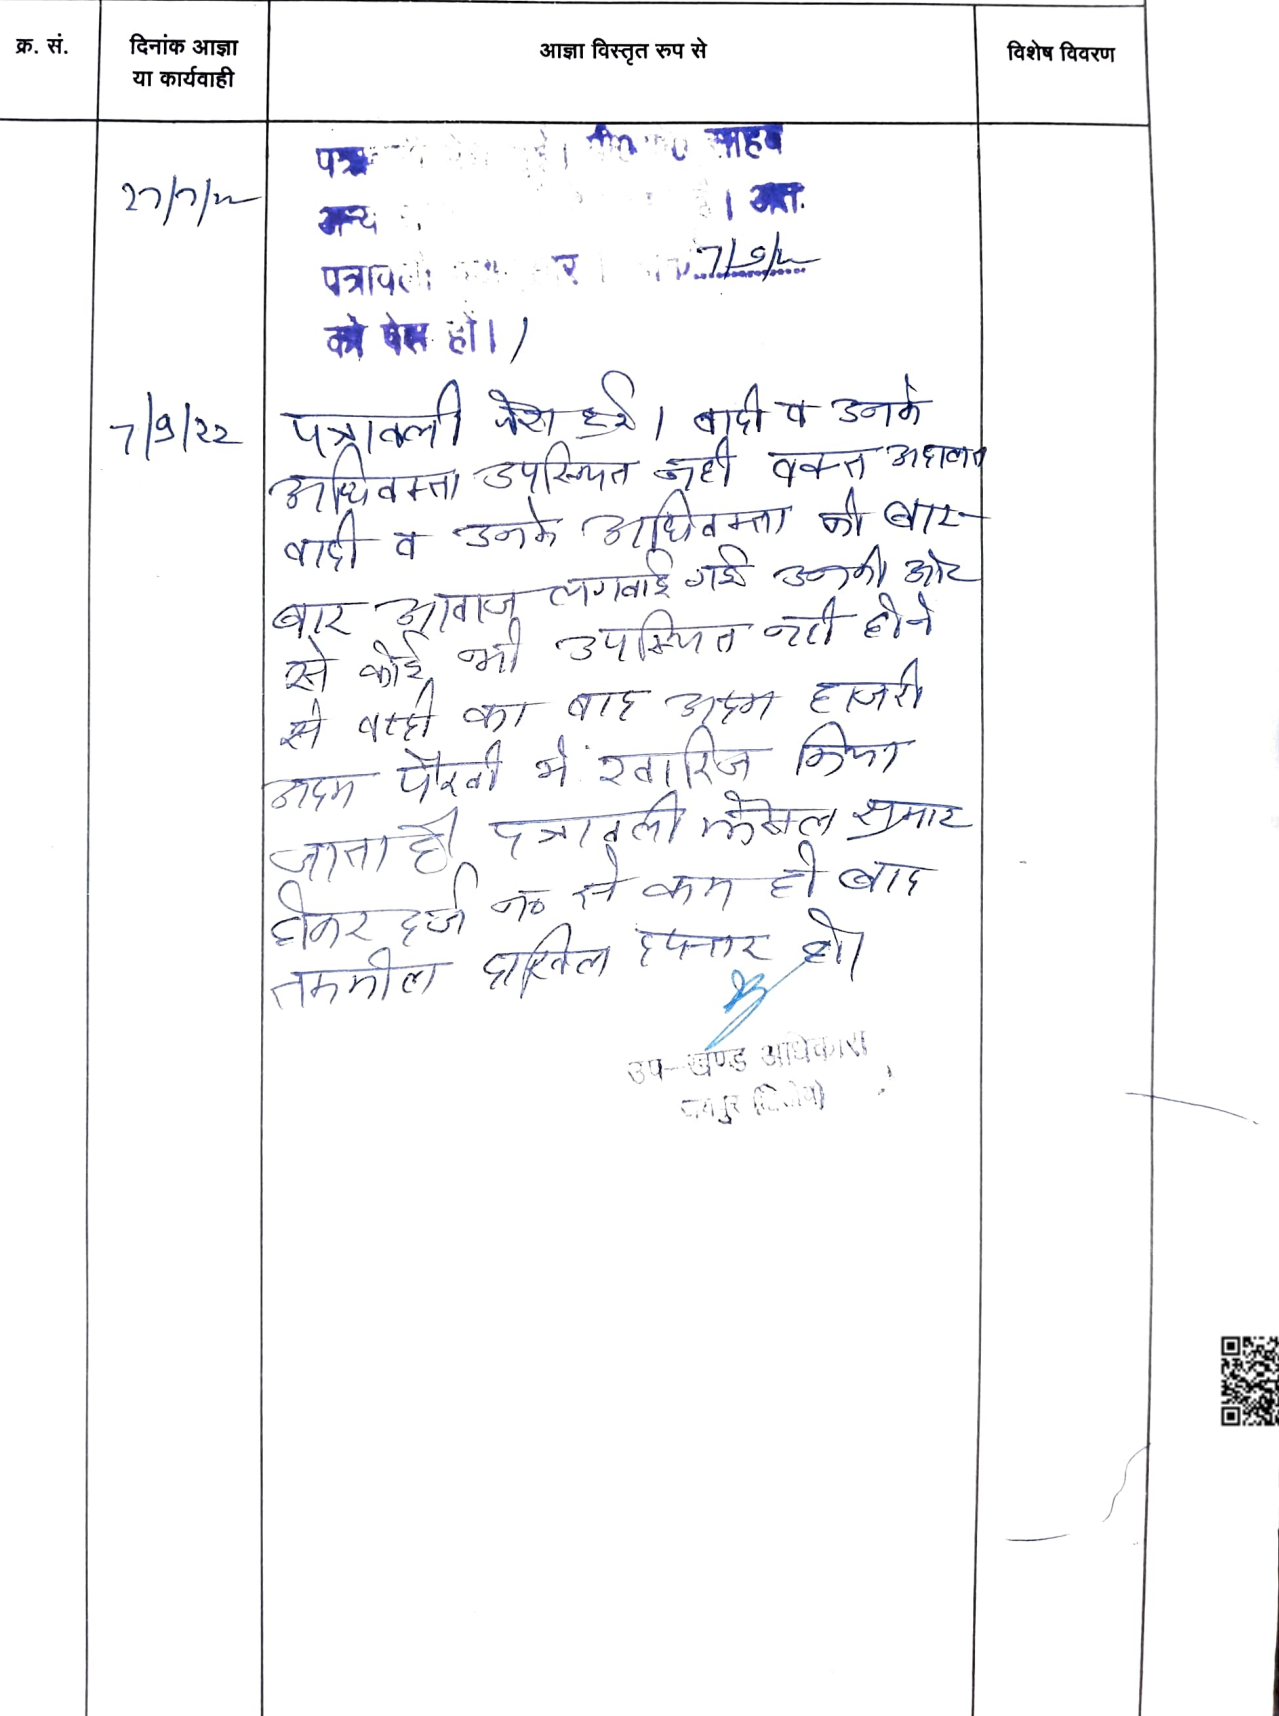 क्र. सं.
दिनांक आज्ञा
या कार्यवाही
आज्ञा विस्तृत रुप से
विशेष विवरण
साहब
27/7/22
अन्य । अतः
पत्रावली 7/9/22
को पेश हो।
7/9/22
पत्रावली पेश हुई। वादी व उनके
अधिवक्ता उपस्थित नही वक्त अदालत
वादी व उनके अधिवक्ता को बार-
बार आवाज लगवाई गई उनकी ओर
से कोई भी उपस्थित नही होने
से वादी का वाद अदम हाजरी
अदम पैरवी में खारिज किया
जाता है। पत्रावली फैसल शुमार
होकर दर्ज न० से कम हो बाद
तकमील दाखिल दफ्तर हो।
उप-खण्ड अधिकारी
जयपुर (द्वितीय)